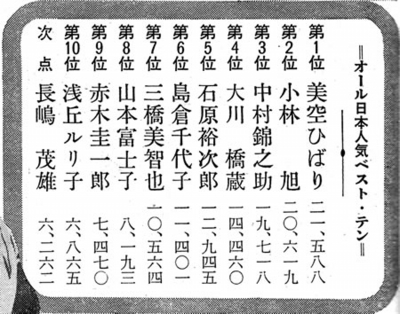 ＝オール日本人気ベスト・テン＝
第1位 美空ひばり 二一、五八八
第2位 小林 旭 二〇、六一九
第3位 中村錦之助 一九、七一八
第4位 大川 橋蔵 一四、四六〇
第5位 石原裕次郎 一二、九四五
第6位 島倉千代子 一一、四〇一
第7位 三橋美智也 一〇、五六四
第8位 山本富士子 八、一九三
第9位 赤木圭一郎 七、四七〇
第10位 浅丘ルリ子 六、八六五
次点 長嶋 茂雄 六、二六二